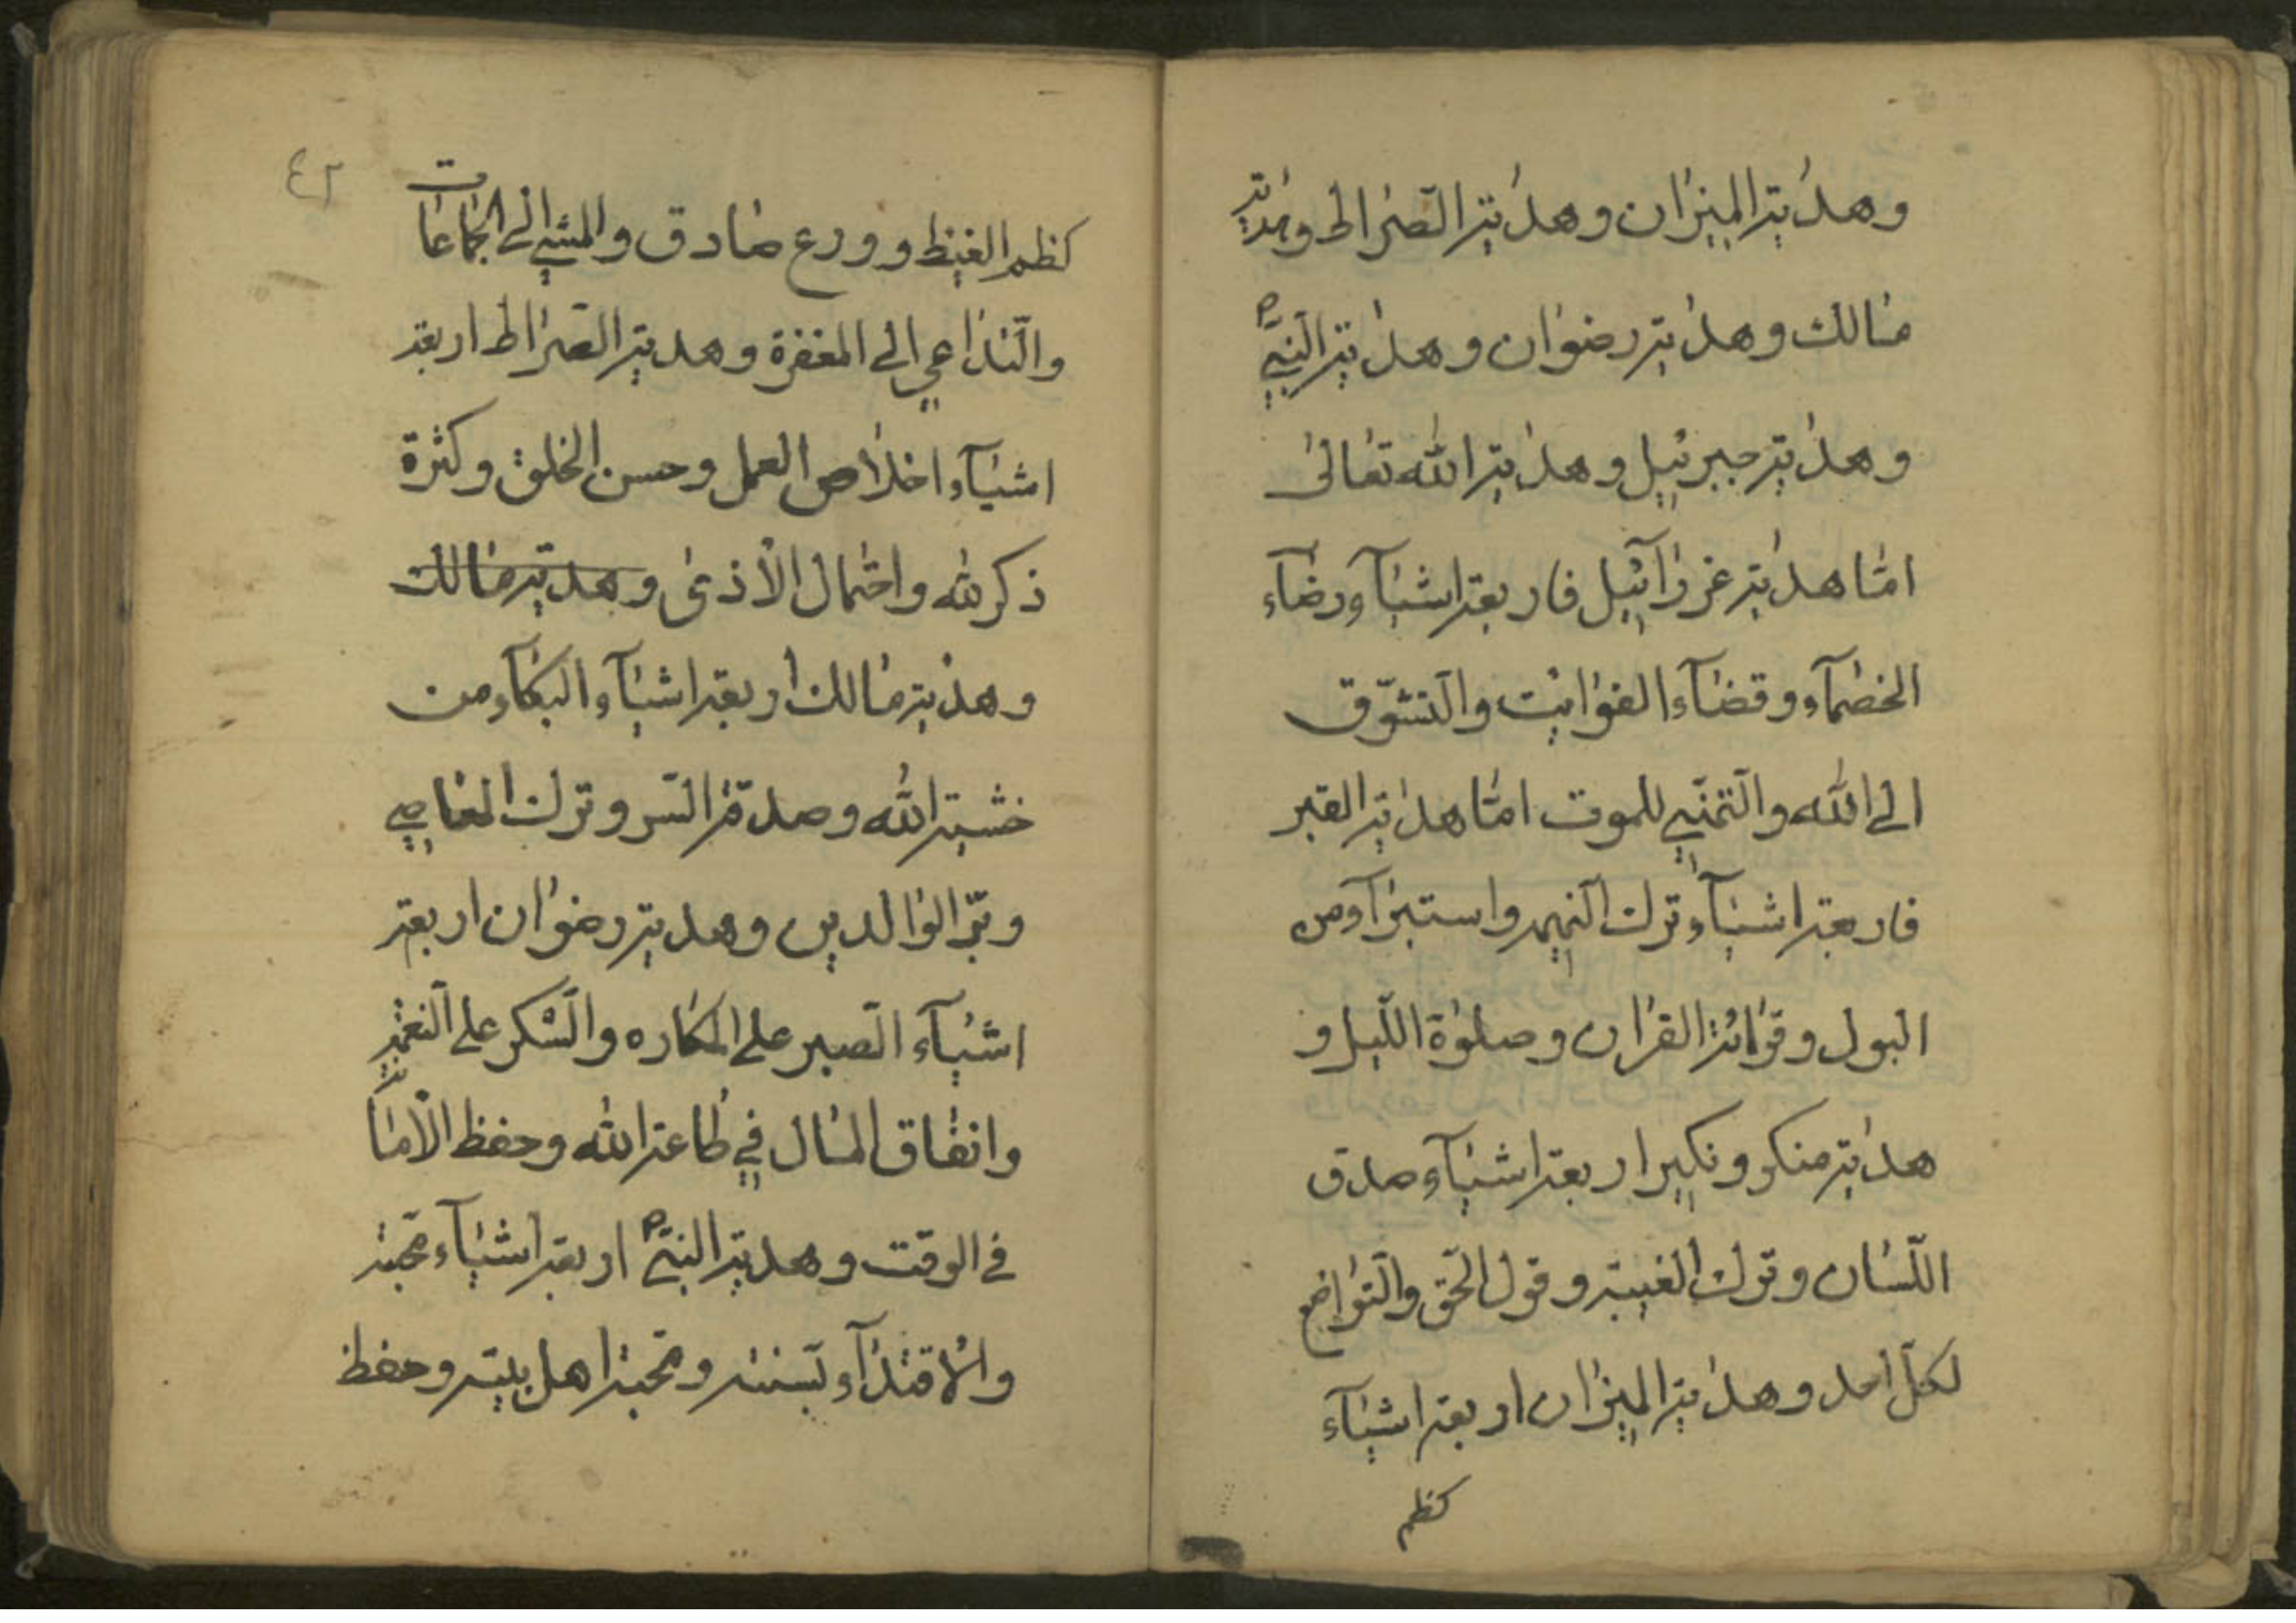 وهدية الميزان وهدية الصراط وهدية
مالك وهدية رضوان وهدية النبي ص
وهدية جبرئيل وهدية الله تعالى
امّا هدية عزرآئيل فاربعة اشيآء رضاء
الخصمآء وقضآء الفوايت والتشوّق
الى الله والتمنّي للموت امّا هدية القبر
فاربعة اشيآء ترك النميمة واستبرآء من
البول وقرائة القران وصلوة الليل و
هدية منكر ونكير اربعة اشيآء صدق
اللسان وترك الغيبة وقول الحق والتواضع
لكل احد وهدية الميزان اربعة اشيآء
كظم
٤٢
كظم الغيظ وورع صادق والمشي الى الجماعات
والتداعي الى المغفرة وهدية الصراط اربعة
اشيآء اخلاص العمل وحسن الخلق وكثرة
ذكر لله واحتمال الأذى وهدية مالك
وهدية مالك اربعة اشيآء البكآء من
خشية الله وصدقة السر وترك المعاصي
وبرّ الوالدين وهدية رضوان اربعة
اشيآء الصبر على المكاره والشكر على النعمة
وانفاق المال في طاعة الله وحفظ الأمانة
في الوقت وهدية النبي ص اربعة اشيآء محبته
والاقتدآء بسنته ومحبة اهل بيته وحفظ